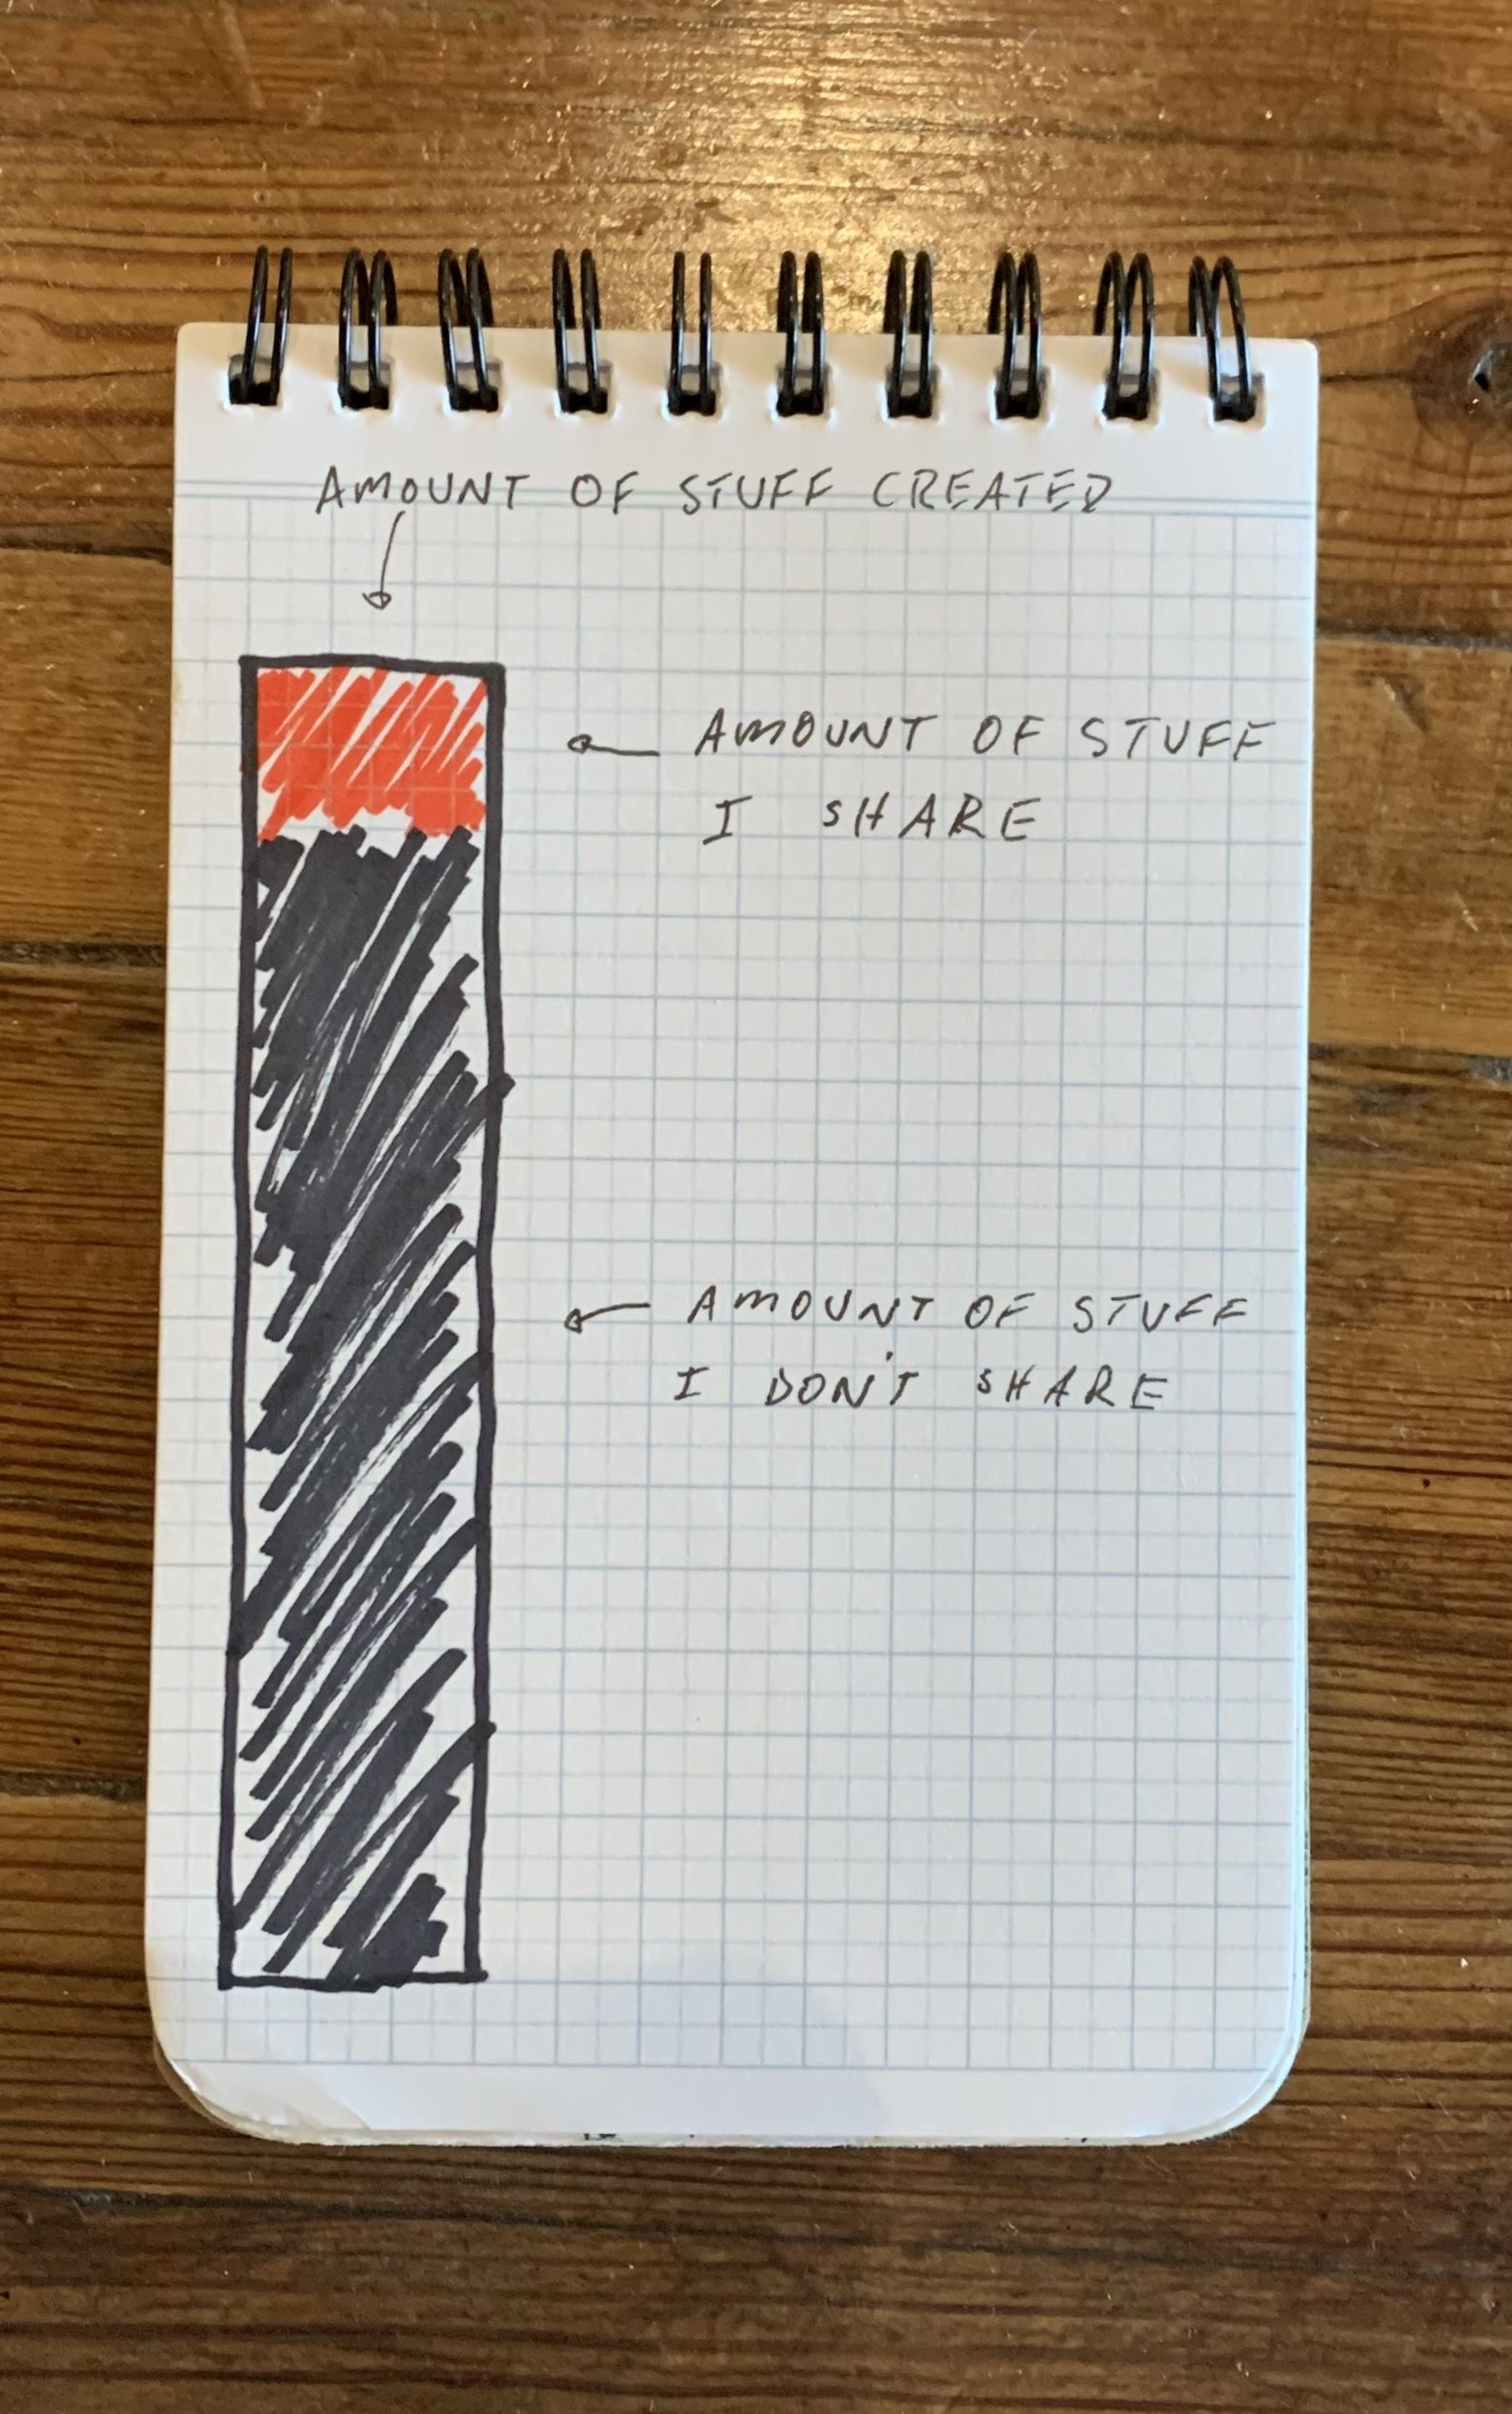 AMOUNT OF STUFF CREATED
AMOUNT OF STUFF
I SHARE
AMOUNT OF STUFF
I DON'T SHARE